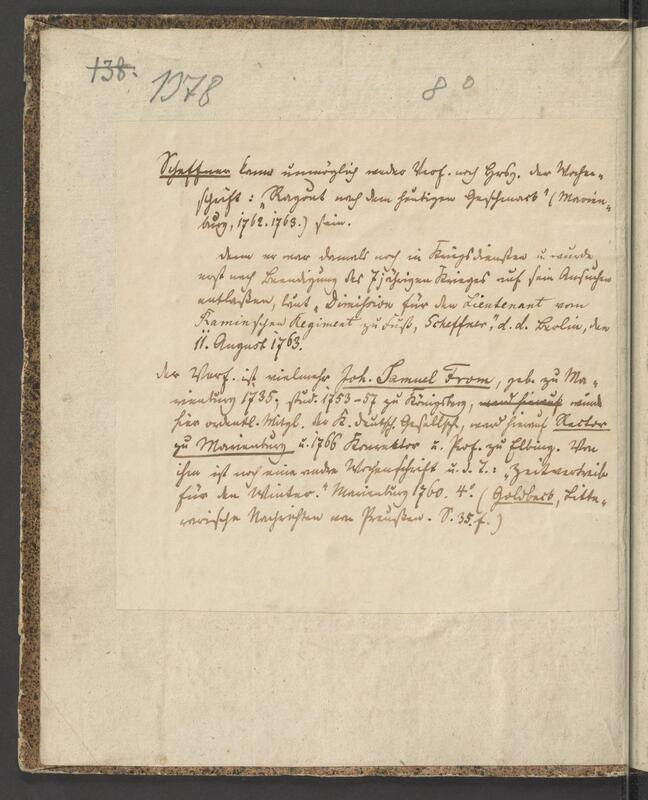 138.
1378
8°
Scheffner kann unmöglich weder Verf. noch Hrsg. der Wochen-
schrift: „Ragout nach dem heutigen Geschmack" (Marien-
burg, 1762. 1763.) sein.
denn er war damals noch in Kriegsdiensten u. wurde
erst nach Beendigung des 7jährigen Krieges auf sein Ansuchen
entlassen, laut „Dimission für den Lieutenant vom
Raminschen Regiment zu Fuß, Scheffner", d. d. Berlin, den
11. August 1763.
der Verf. ist vielmehr Joh. Samuel From, geb. zu Ma-
rienburg 1735, stud. 1753-57 zu Königsberg, ward hierauf wurde
hier ordentl. Mitgl. der K. deutsch. Gesellsch., ward hierauf Rector
zu Marienburg u. 1766 Konrektor u. Prof. zu Elbing. Von
ihm ist noch eine andre Wochenschrift u. d. T.: „Zeitvertreib
für den Winter." Marienburg 1760. 4° (Goldbeck, Litte-
rarische Nachrichten von Preußen. S. 35. f.)